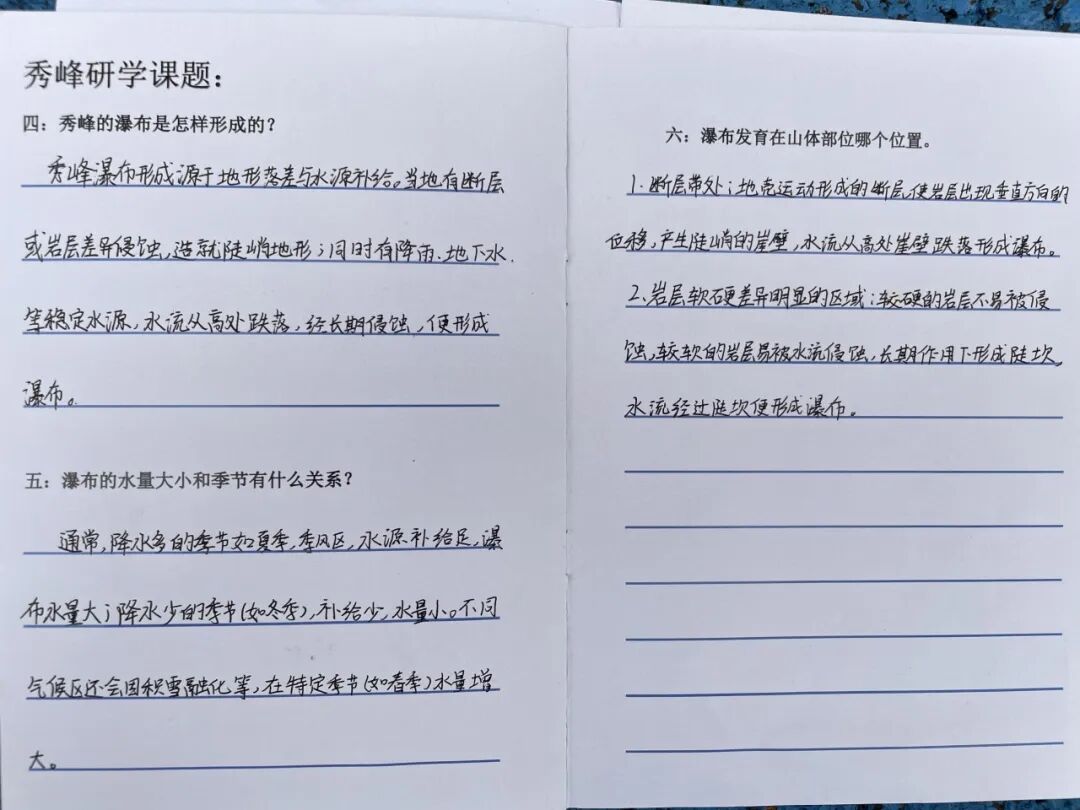 秀峰研学课题：
四：秀峰的瀑布是怎样形成的？
秀峰瀑布形成源于地形落差与水源补给。当地有断层
或岩层差异侵蚀，造就陡峭地形；同时有降雨、地下水
等稳定水源，水流从高处跌落，经长期侵蚀，便形成
瀑布。
五：瀑布的水量大小和季节有什么关系？
通常，降水多的季节如夏季，季风区，水源补给足，瀑
布水量大；降水少的季节（如冬季），补给少，水量小。不同
气候区还会因积雪融化等，在特定季节（如春季）水量增
大。
六：瀑布发育在山体部位哪个位置。
1、断层带处；地壳运动形成的断层，使岩层出现垂直方向的
位移，产生陡峭的崖壁，水流从高处崖壁跌落形成瀑布。
2、岩层软硬差异明显的区域：较硬的岩层不易被侵
蚀，较软的岩层易被水流侵蚀，长期作用下形成陡坎，
水流经过陡坎便形成瀑布。